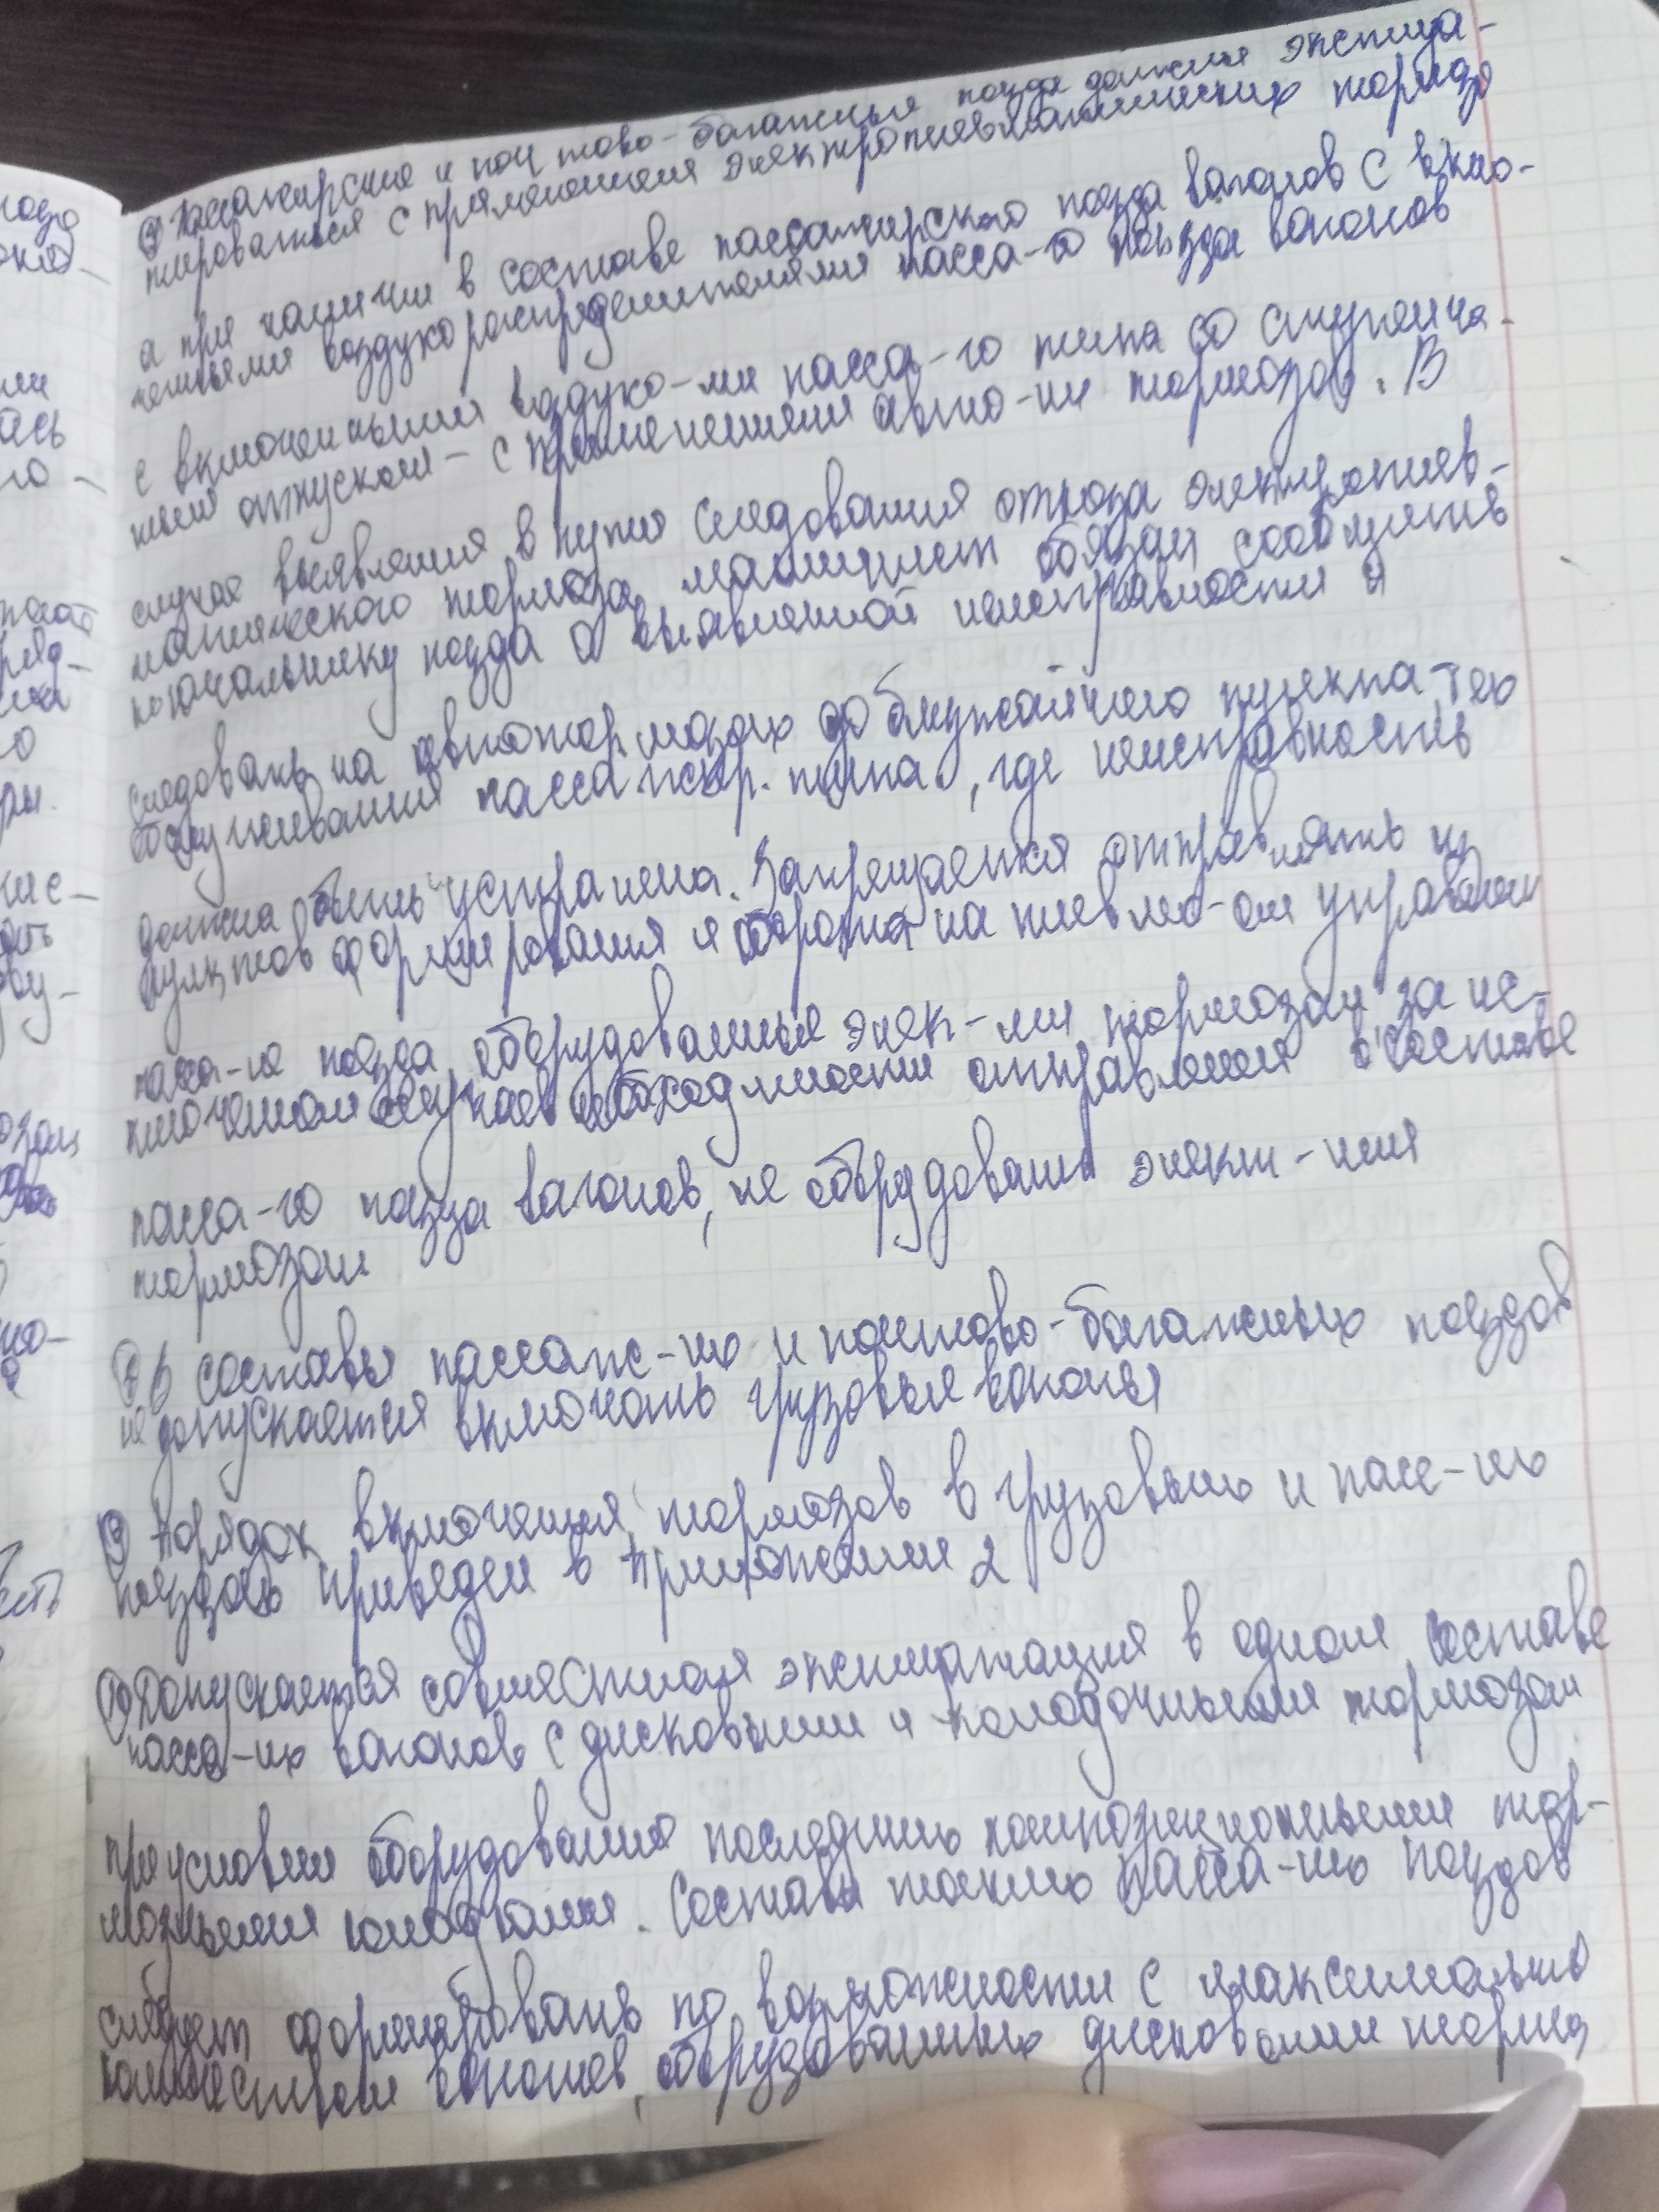 Пассажирские и почтово-багажные поезда должны эксплуа-
тироваться с применением электропневматических тормозов
а при наличии в составе пассажирского поезда вагонов с вклю-
ченными воздухораспределителями пасса-го поезда вагонов
с включенными воздухо-ми пасса-го типа со ступенча-
тым отпуском - с применением авто-ких тормозов. В
случае выявления в пути следования отказа электропнев-
матического тормоза машинист обязан сообщить
начальнику поезда о выявленной неисправности и
следовать на автотормозах до ближайшего пункта тех
обслуживания пассажир. типа, где неисправность
должна быть устранена. Запрещается отправлять из
пунктов формирования и оборота на пневмо-ом управлении
пасса-ие поезда, оборудованные элек-ми тормозами за ис-
ключением случаев необходимости отправления в составе
пасса-го поезда вагонов, не оборудованы элект-ими
тормозами
В составы пассаж-их и почтово-багажных поездов
не допускается включать грузовые вагоны
9) Порядок включения тормозов в грузовых и пасс-их
поездах приведен в приложении 2
10) Допускается совместная эксплуатация в одном составе
пасса-их вагонов с дисковыми и колодочными тормозами
при условии оборудования последних композиционными тор-
мозными колодками. Составы таких пасса-их поездов
следует формировать по возможности с максимальным
количеством вагонов, оборудованных дисковыми тормоз